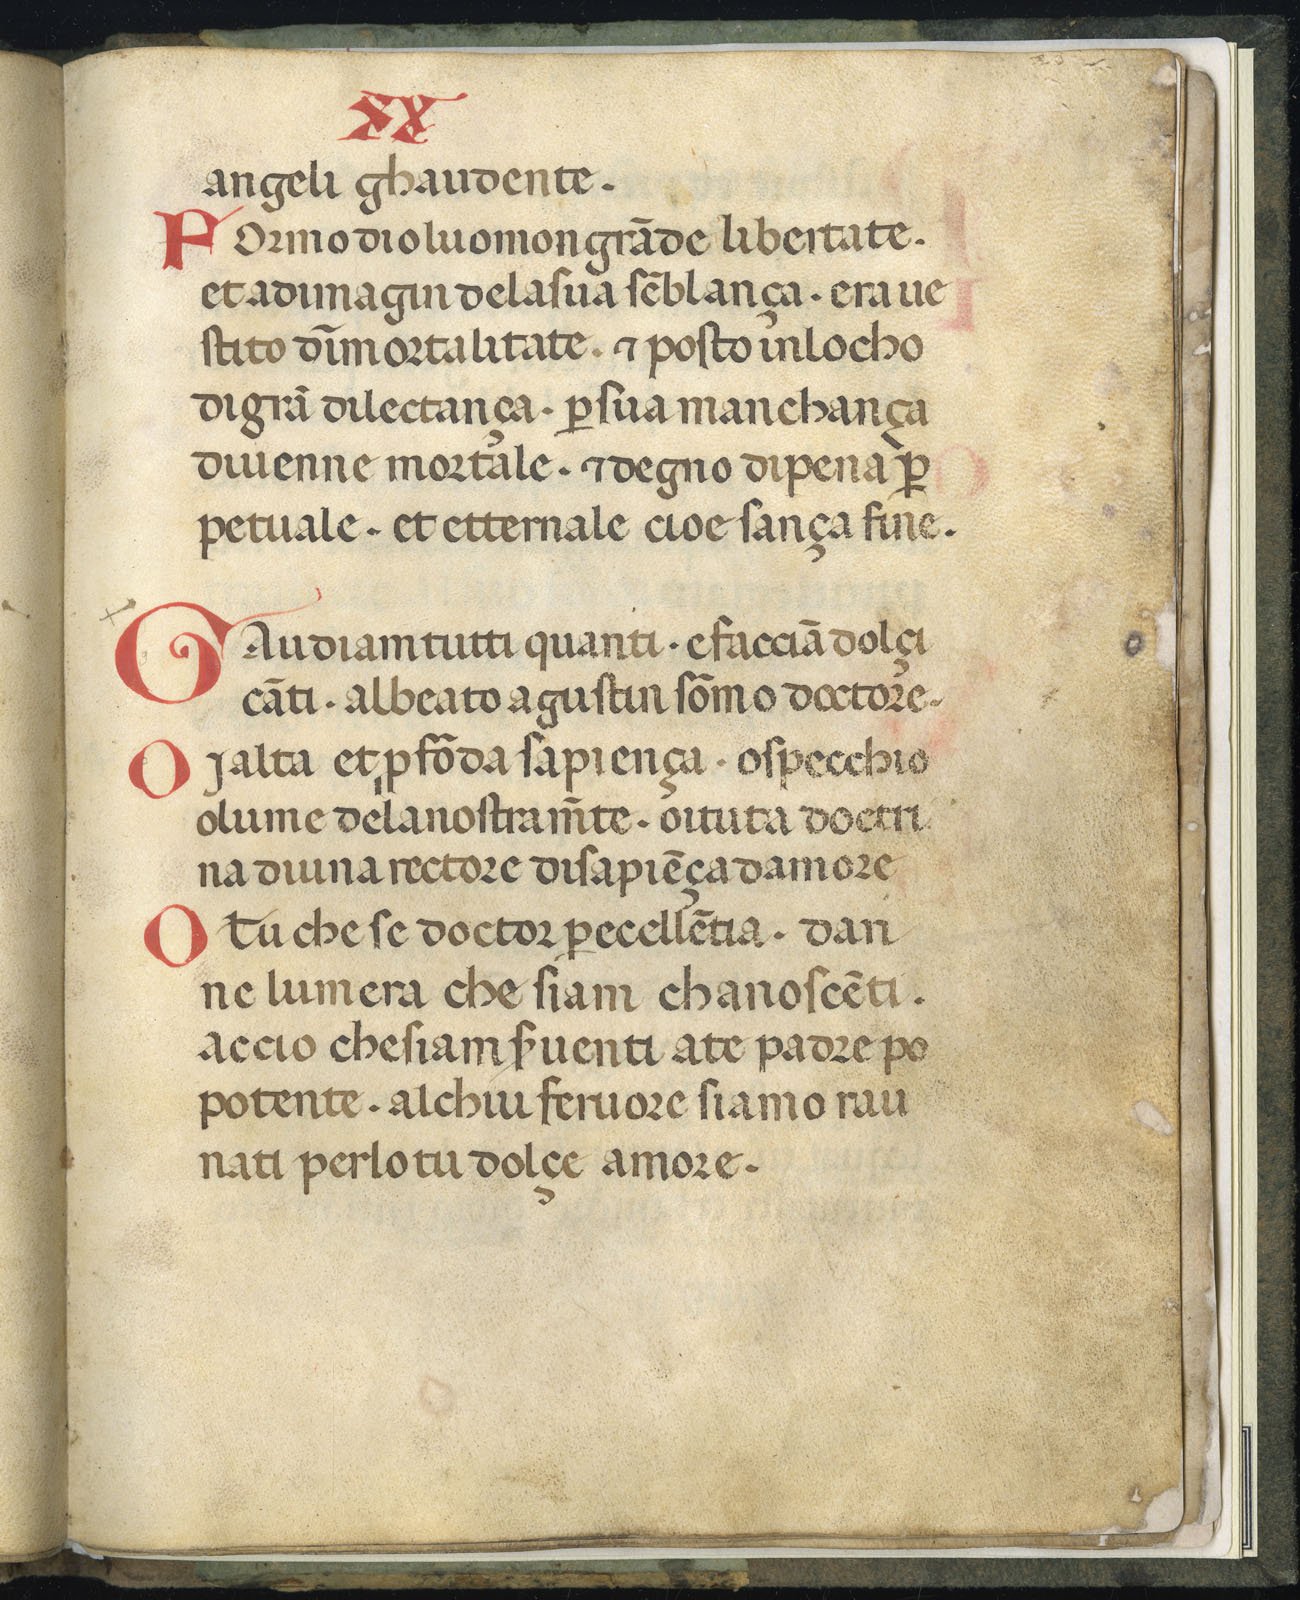 XX
angeli ghaudente.
FOrmo dio luomo n grāde libertate.
et ad imagin dela sua sēblança. era ue
stito dīmortalitate. ⁊ posto in locho
di grā dilectança. ꝑ sua manchança
diuenne mortale. ⁊ degno di pena ꝑ
petuale. et etternale cioe sança fine.
GAudiam tutti quanti. e facciā dolçi
cāti. al beato agustin sōmo doctore.
O jalta et ꝓfōda sapiença. o specchio
o lume dela nostra m̄te. o i tuta doctri
na diuina rectore di sapiēça damore
O Tu che se doctor ꝑ ecellētia. dan
ne lumera che siam chanoscēti.
accio che siam ẜuenti a te padre po
potente. al chui feruore siamo rau
nati per lo tu dolçe amore.